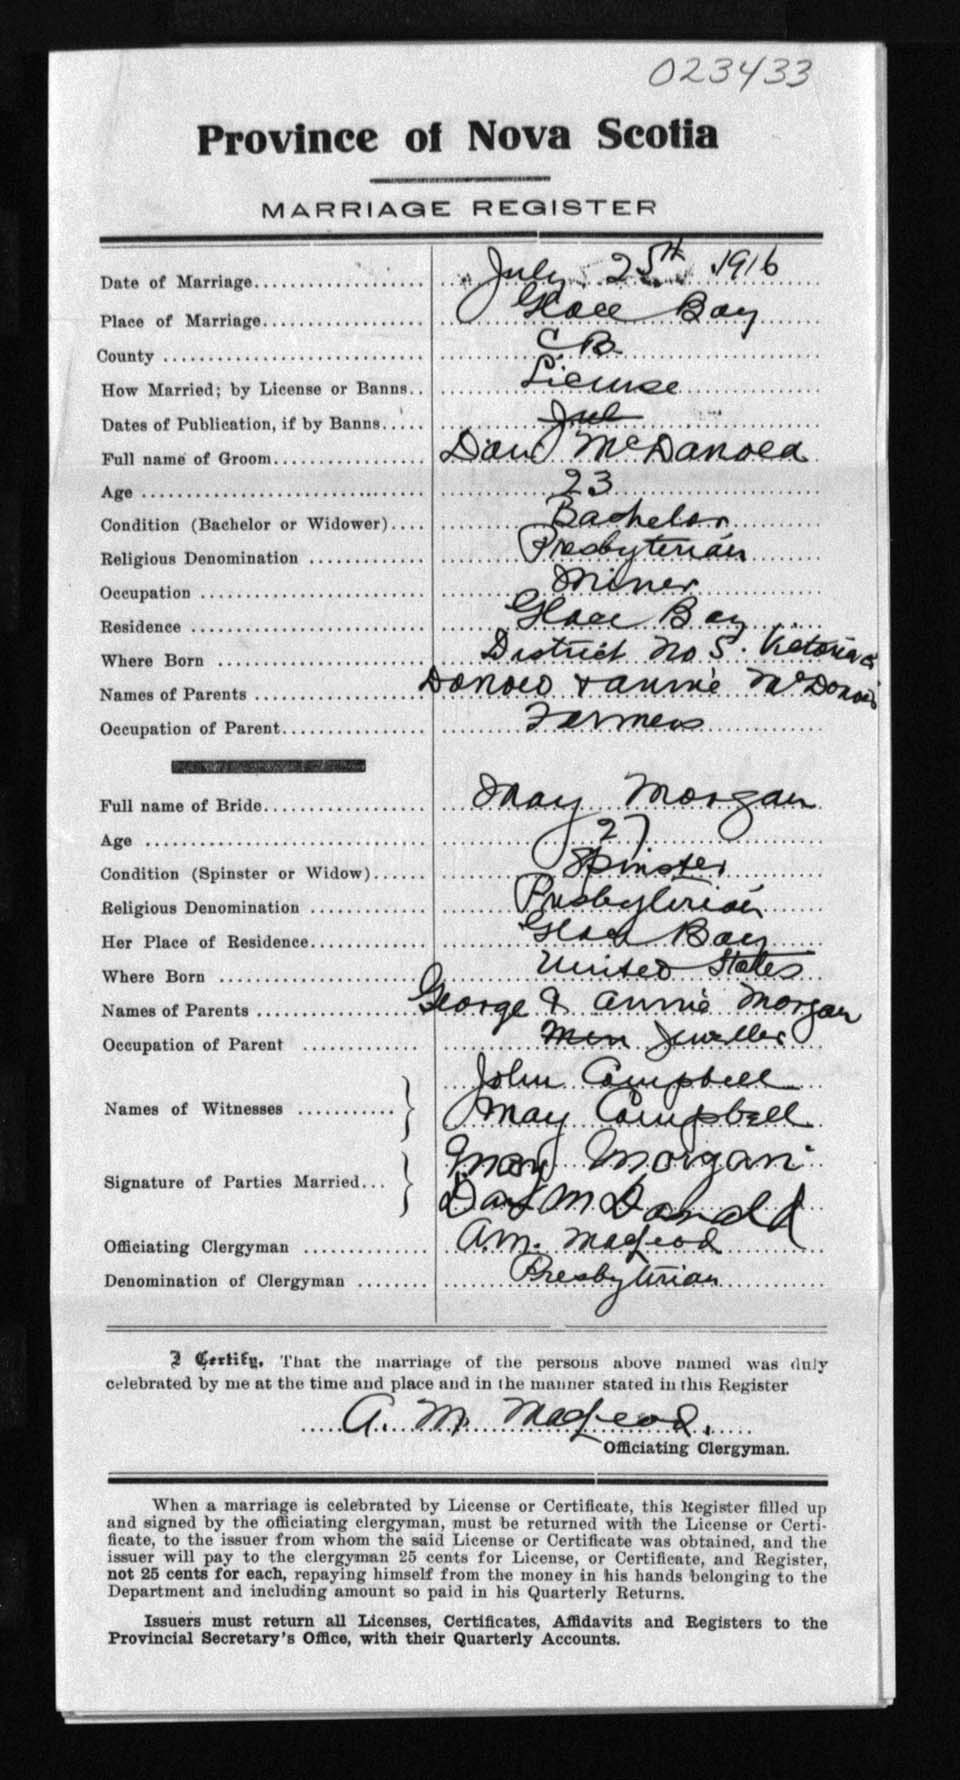 023433
Province of Nova Scotia
MARRIAGE REGISTER
Date of Marriage.................... July 25th 1916
Place of Marriage................... Glace Bay
County .............................. C B.
How Married; by License or Banns.. License
Dates of Publication, if by Banns..... Jul
Full name of Groom.................. Dan McDanold
Age .................................. 23
Condition (Bachelor or Widower).... Bachelor
Religious Denomination ............. Presbyterian
Occupation .......................... Miner
Residence ........................... Glace Bay
Where Born ......................... District No 5. Victoria
Names of Parents ................... Donald & Annie McDonald
Occupation of Parent................ Farmers
Full name of Bride.................. May Morgan
Age ................................. 27
Condition (Spinster or Widow)...... Spinster
Religious Denomination ............ Presbyterian
Her Place of Residence............. Glace Bay
Where Born ........................ United States
Names of Parents .................. George & Annie Morgan
Occupation of Parent .............. Jeweller
Names of Witnesses ........... } John Campbell
May Campbell
Signature of Parties Married... } May Morgan
Dan McDonald
Officiating Clergyman .............. A.M. MacLeod
Denomination of Clergyman ........ Presbyterian
I Certify, That the marriage of the persons above named was duly
celebrated by me at the time and place and in the manner stated in this Register
A. M. MacLeod.
Officiating Clergyman.
When a marriage is celebrated by License or Certificate, this Register filled up
and signed by the officiating clergyman, must be returned with the License or Certi-
ficate, to the issuer from whom the said License or Certificate was obtained, and the
issuer will pay to the clergyman 25 cents for License, or Certificate, and Register,
not 25 cents for each, repaying himself from the money in his hands belonging to the
Department and including amount so paid in his Quarterly Returns.
Issuers must return all Licenses, Certificates, Affidavits and Registers to the
Provincial Secretary's Office, with their Quarterly Accounts.